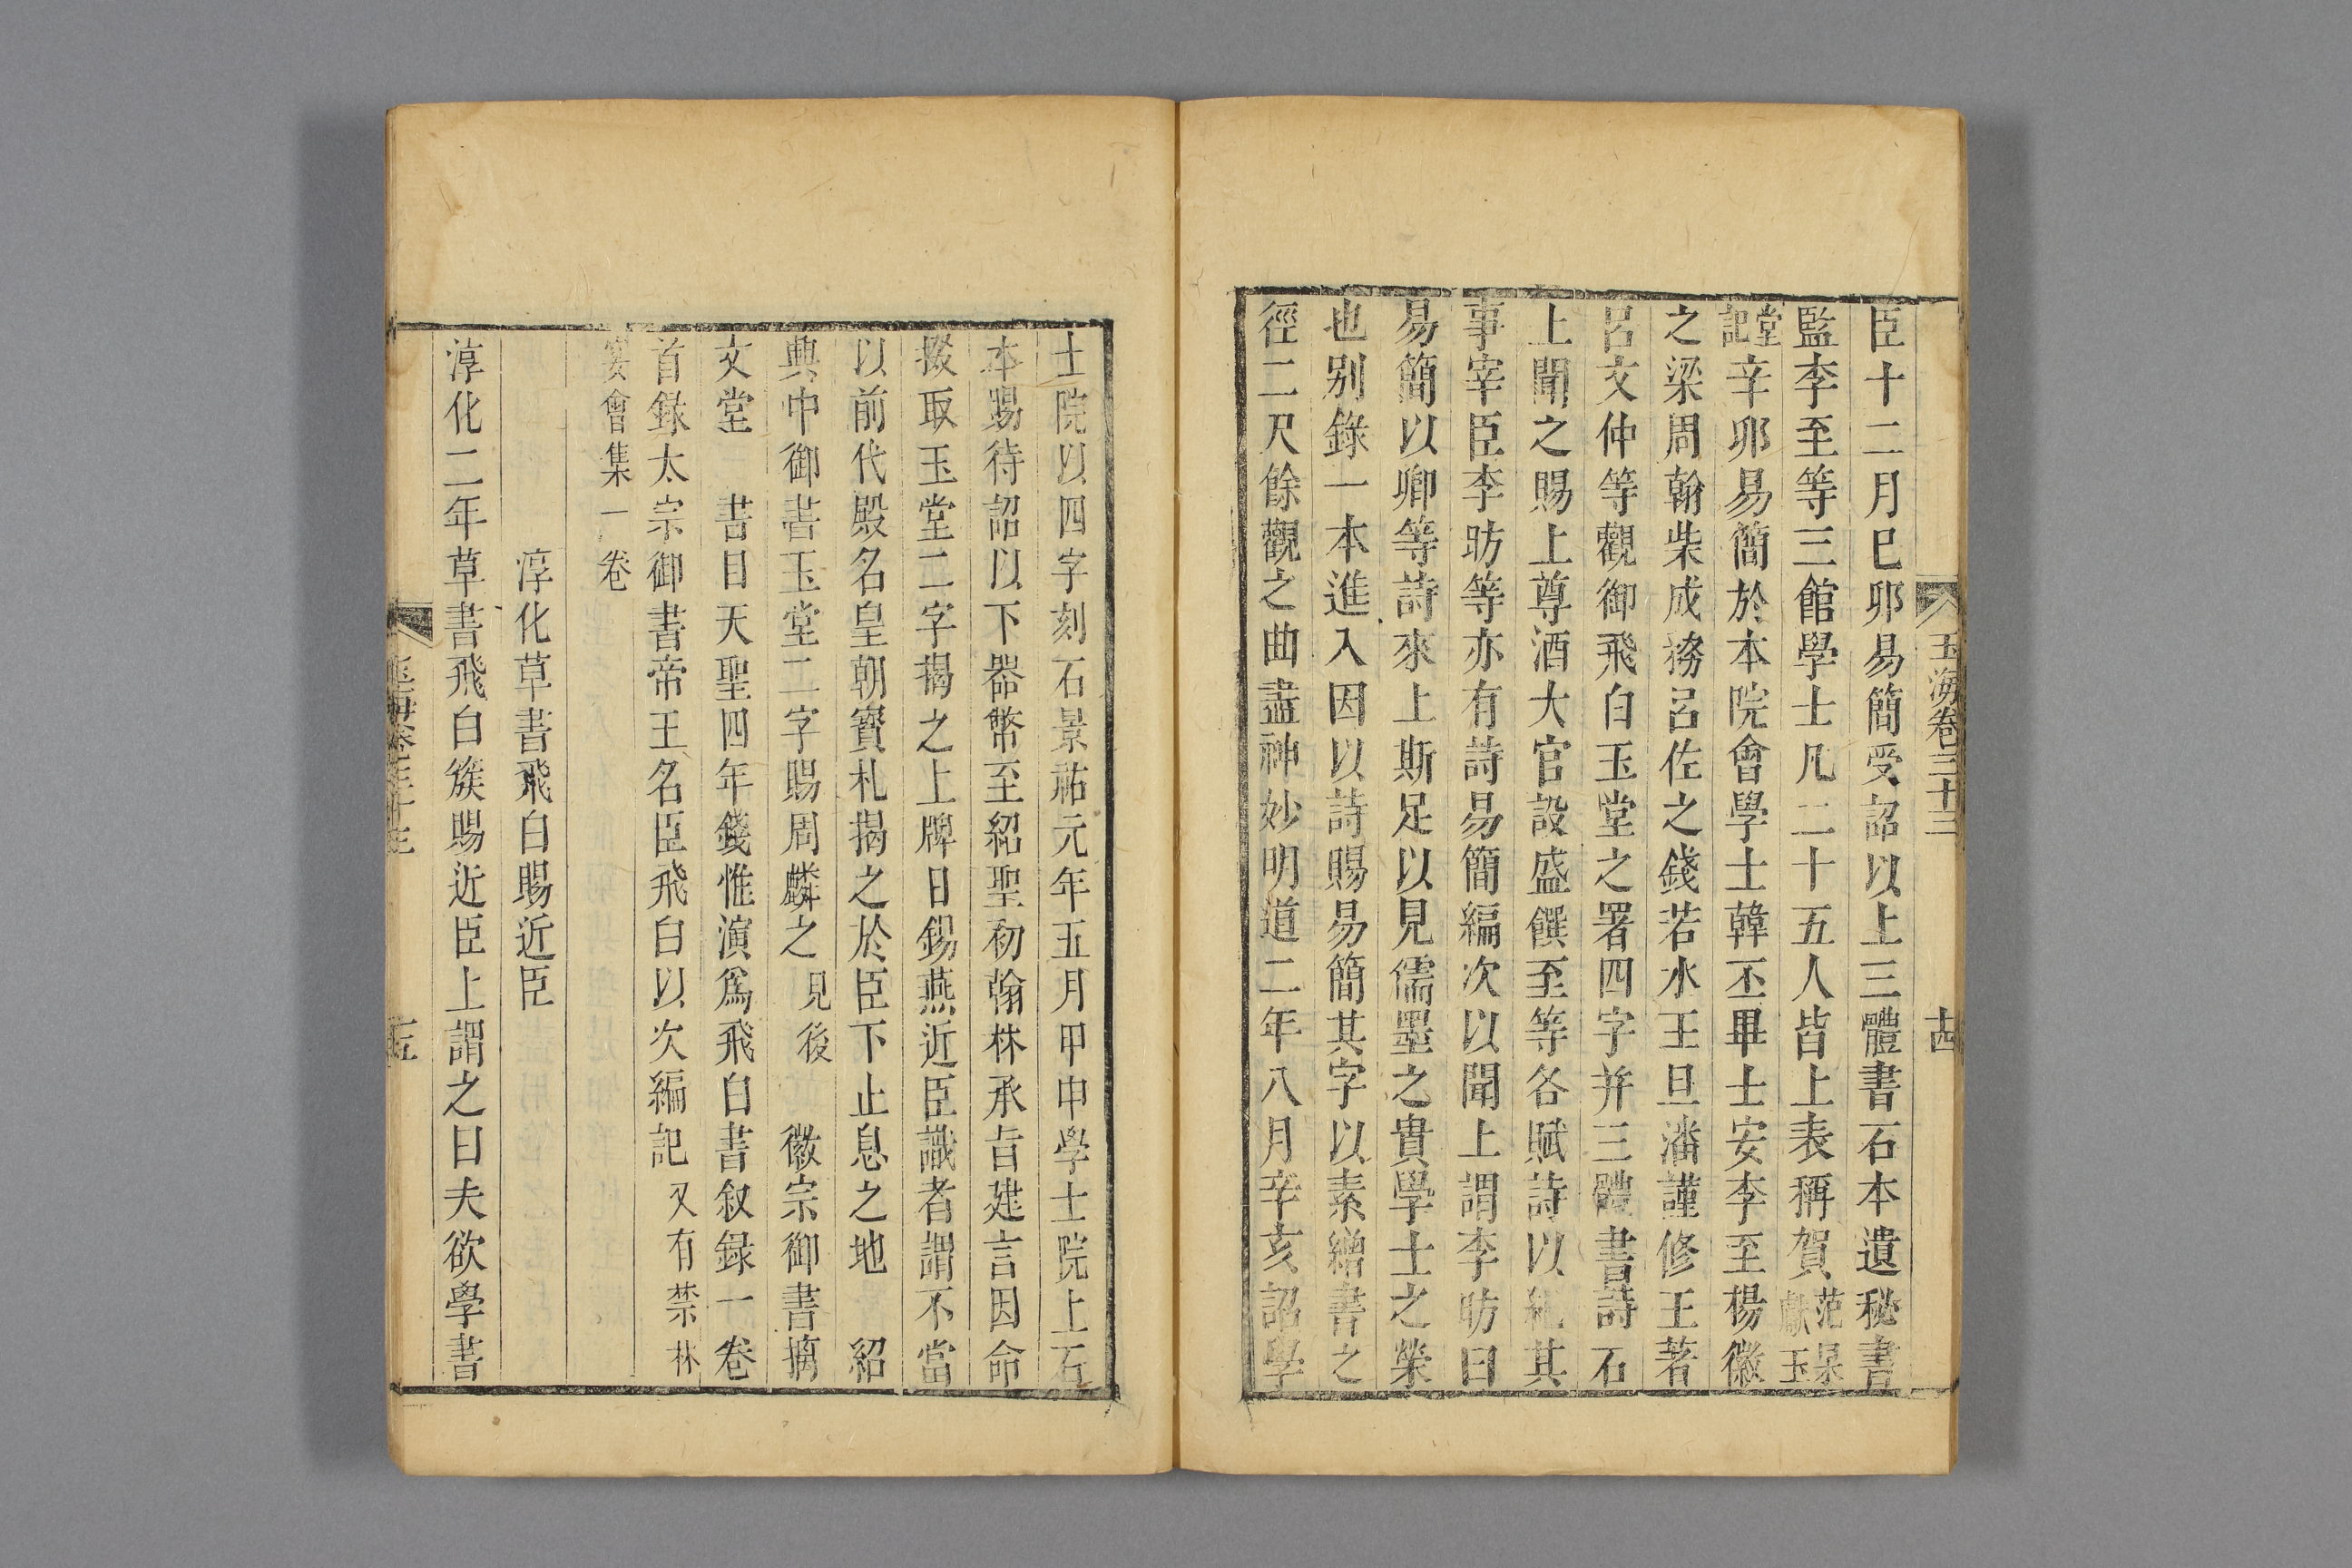 玉海卷三十三
十四
臣十二月巳卯易簡受詔以上三體書石本遺秘書
監李至等三館學士凡二十五人皆上表稱賀范杲獻玉
堂記辛卯易簡於本院會學士韓丕畢士安李至楊徽
之梁周翰柴成務呂佐之錢若水王旦潘謹修王著
呂文仲等觀御飛白玉堂之署四字并三體書詩石
上聞之賜上尊酒大官設盛饌至等各賦詩以紀其
事宰臣李昉等亦有詩易簡編次以聞上謂李昉曰
易簡以卿等詩來上斯足以見儒墨之貴學士之榮
也别錄一本進入因以詩賜易簡其字以素繒書之
徑二尺餘觀之曲盡神妙明道二年八月辛亥詔學
士院以四字刻石景祐元年五月甲申學士院上石
本賜待詔以下器幣至紹聖初翰林承旨建言因命
掇取玉堂二字揭之上牌曰錫燕近臣識者謂不當
以前代殿名皇朝寳札揭之於臣下止息之地 紹
興中御書玉堂二字賜周麟之見後 徽宗御書摛
文堂 書目天聖四年錢惟演爲飛白書叙録一卷
首錄太宗御書帝王名臣飛白以次編記又有禁林
宴會集一卷
淳化草書飛白賜近臣
淳化二年草書飛白簇賜近臣上謂之曰夫欲學書
玉海卷三十三
十五